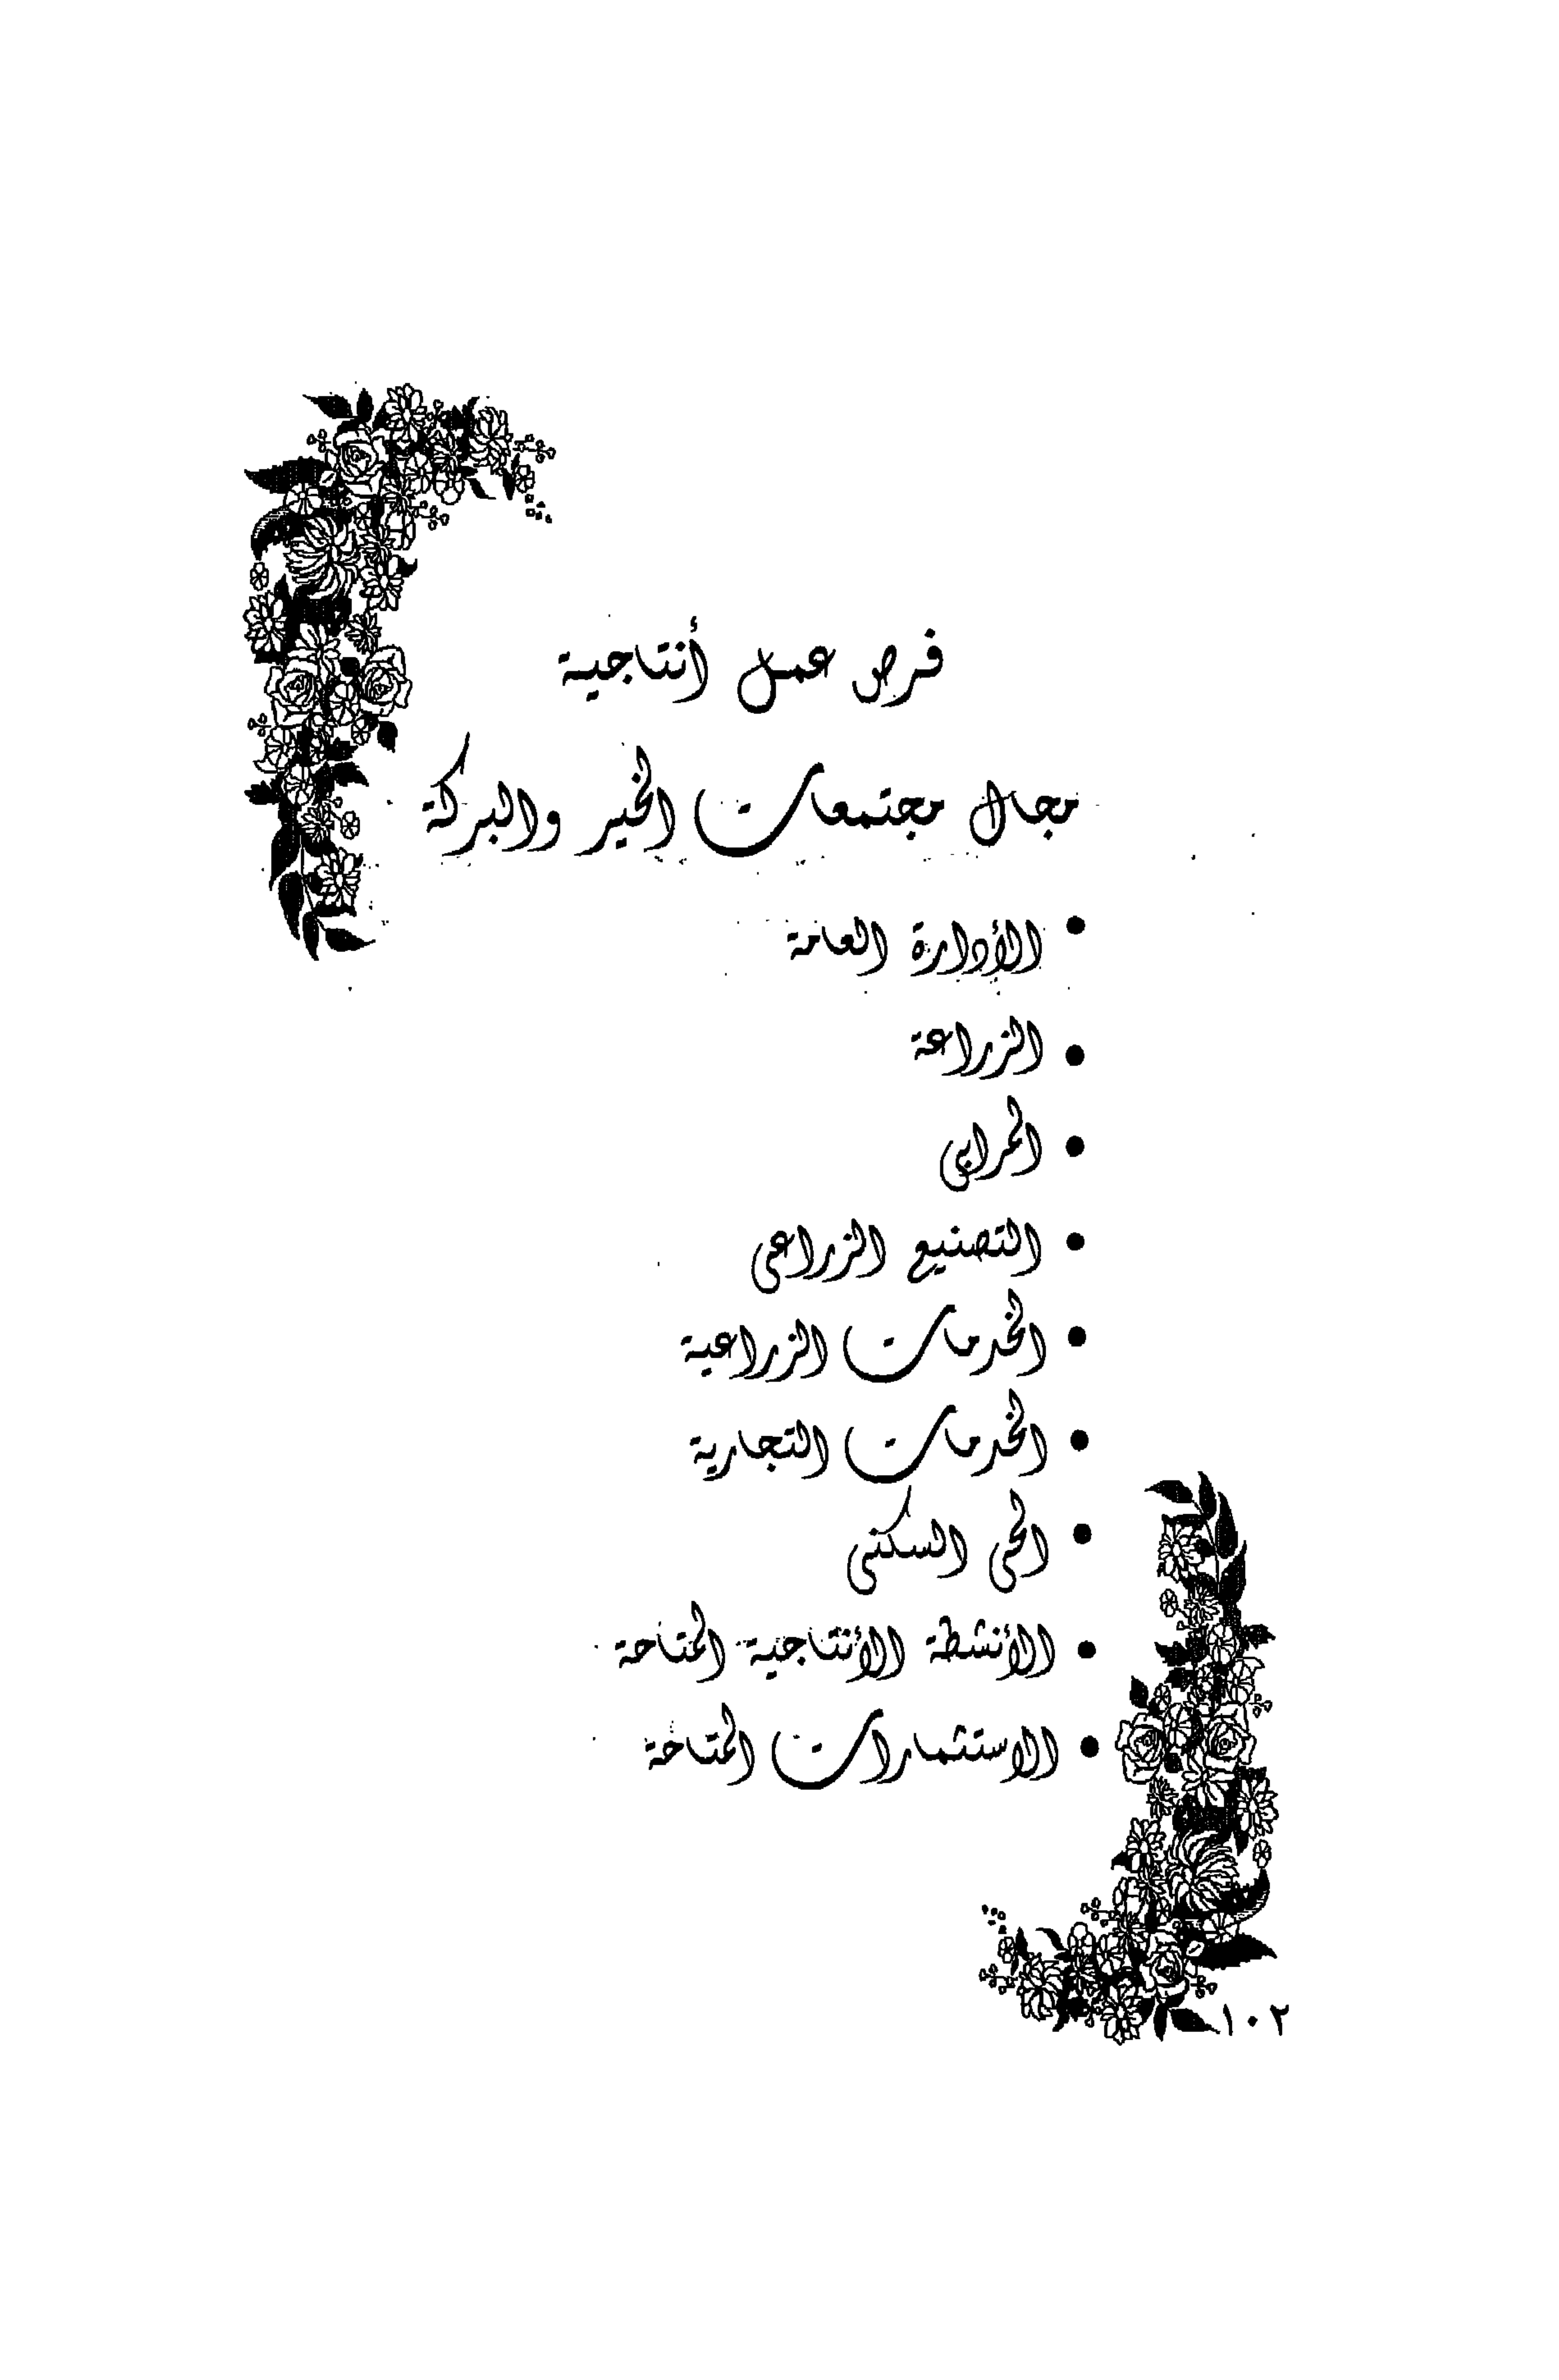 فرص عمل أنتاجية
مجال مجتمعات الخير والبركة
• الأدارة العامة
• الزراعة
• المرابى
• التصنيع الزراعى
• الخدمات الزراعية
• الخدمات التجارية
• الحى السكنى
• الأنشطة الأنتاجية المتاحة
• الاستثمارات المتاحة
١٠٢